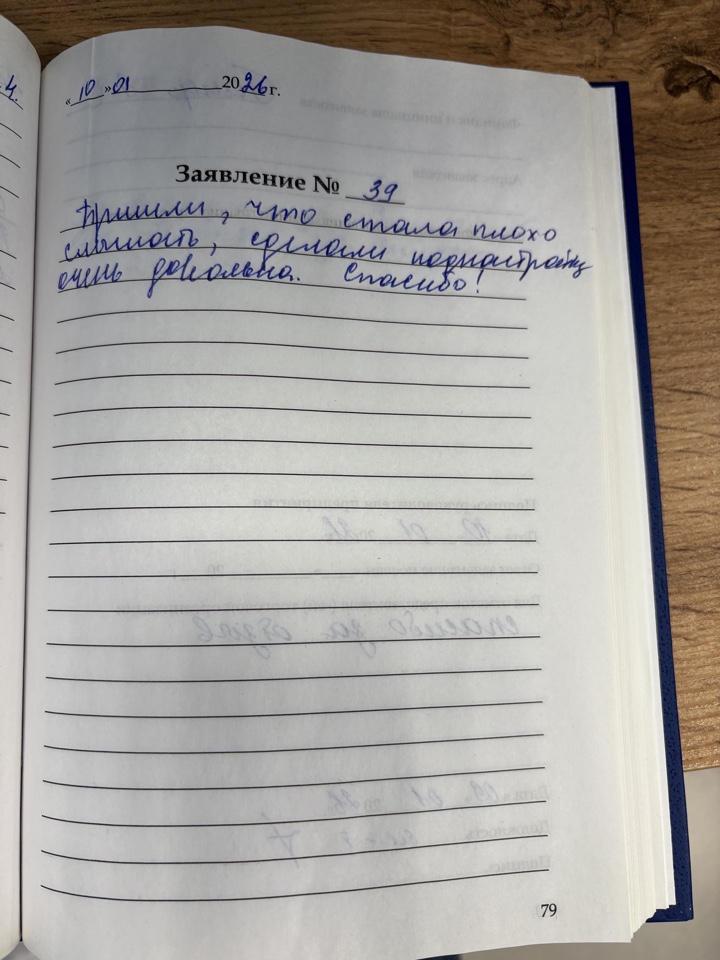 4.
«10» 01 2026 г.
Заявление № 39
Пришли, что стала плохо
слышать, сделали поднастройку
очень довольна. Спасибо!
79